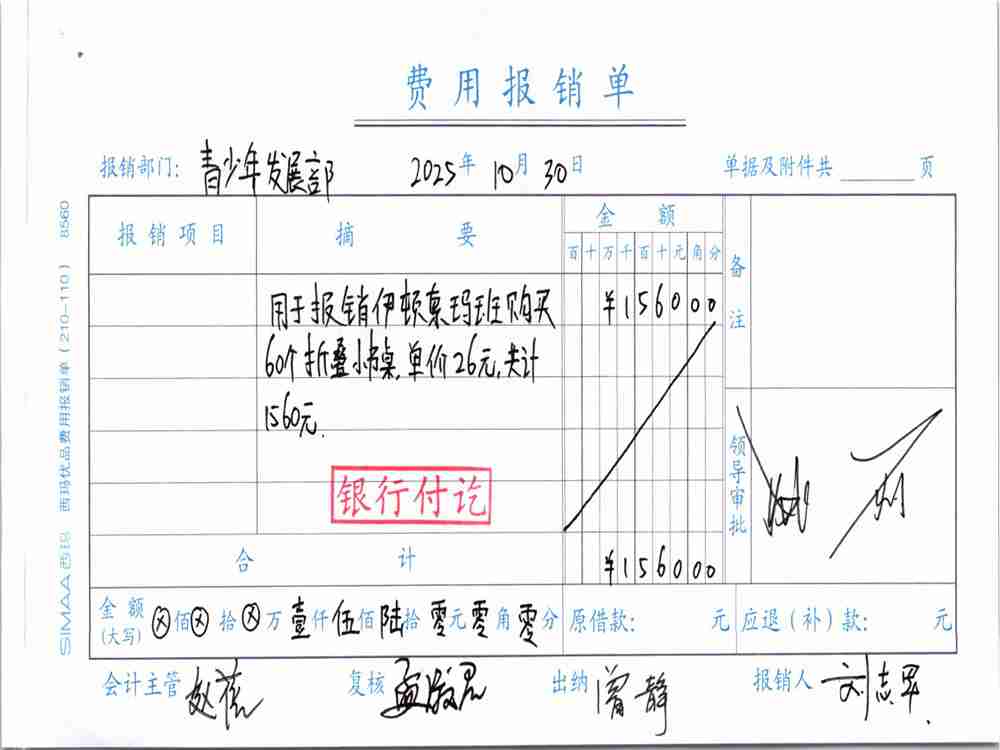 费用报销单
报销部门: 青少年发展部 2025年 10月 30日 单据及附件共 页
报销项目 摘要 金额 备注
百十万千百十元角分
用于报销伊顿慕玛班购买 ¥156000
60个折叠小书桌,单价26元,共计
1560元.
银行付讫
领导审批
合计 ¥156000
金额(大写) ⊗佰⊗拾⊗万壹仟伍佰陆拾零元零角零分 原借款: 元 应退(补)款: 元
会计主管 复核 出纳 曾静 报销人 刘志军.
SIMAA西玛 西玛优品费用报销单(210-110) 8560